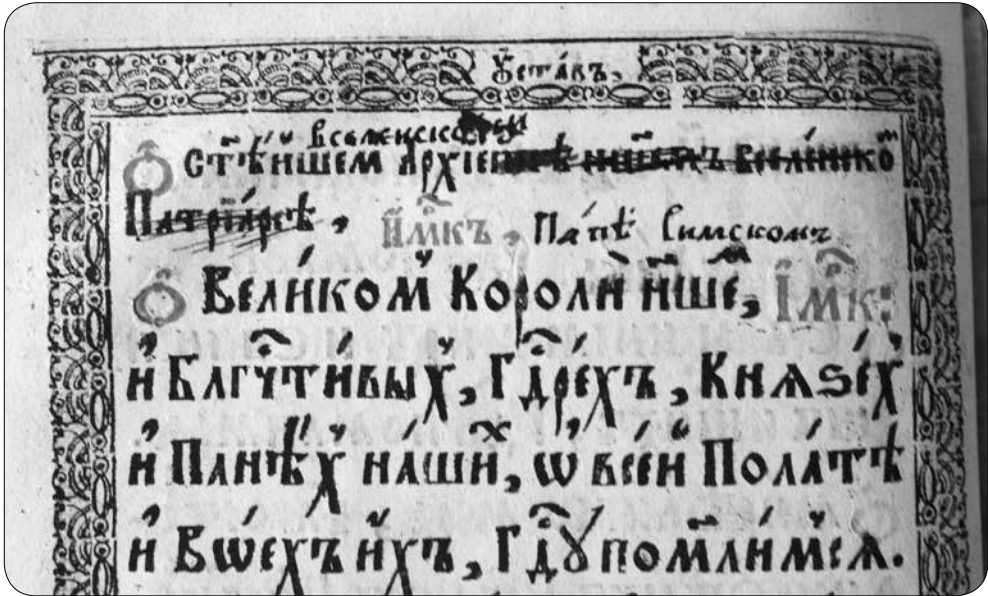 Ꙋ҆ста́въ,
вселенско
Ѻ҆ Ст҃ѣ́ишем Архіеп
Патріа́рсѣ, И҆М҃къ, Па́пѣ Римскомъ
Ѻ҆ Великом Короли нше, І҆М҃к:
и҆ Блгч҃ти́выхъ, Гдⷭ҇рехъ, Кнѧѕе́х
и҆ Панѣ́х на́шихъ, ѡ҆ все́и Пола́тѣ
и҆ Воехъ и҆́хъ, Гд҃ꙋ помл҃и́мсѧ.